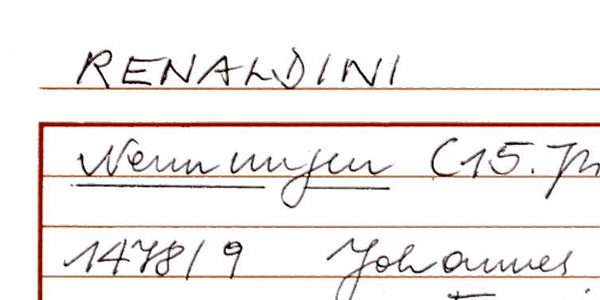 RENALDINI
Nennungen (15. Jh
1478/9 Johannes